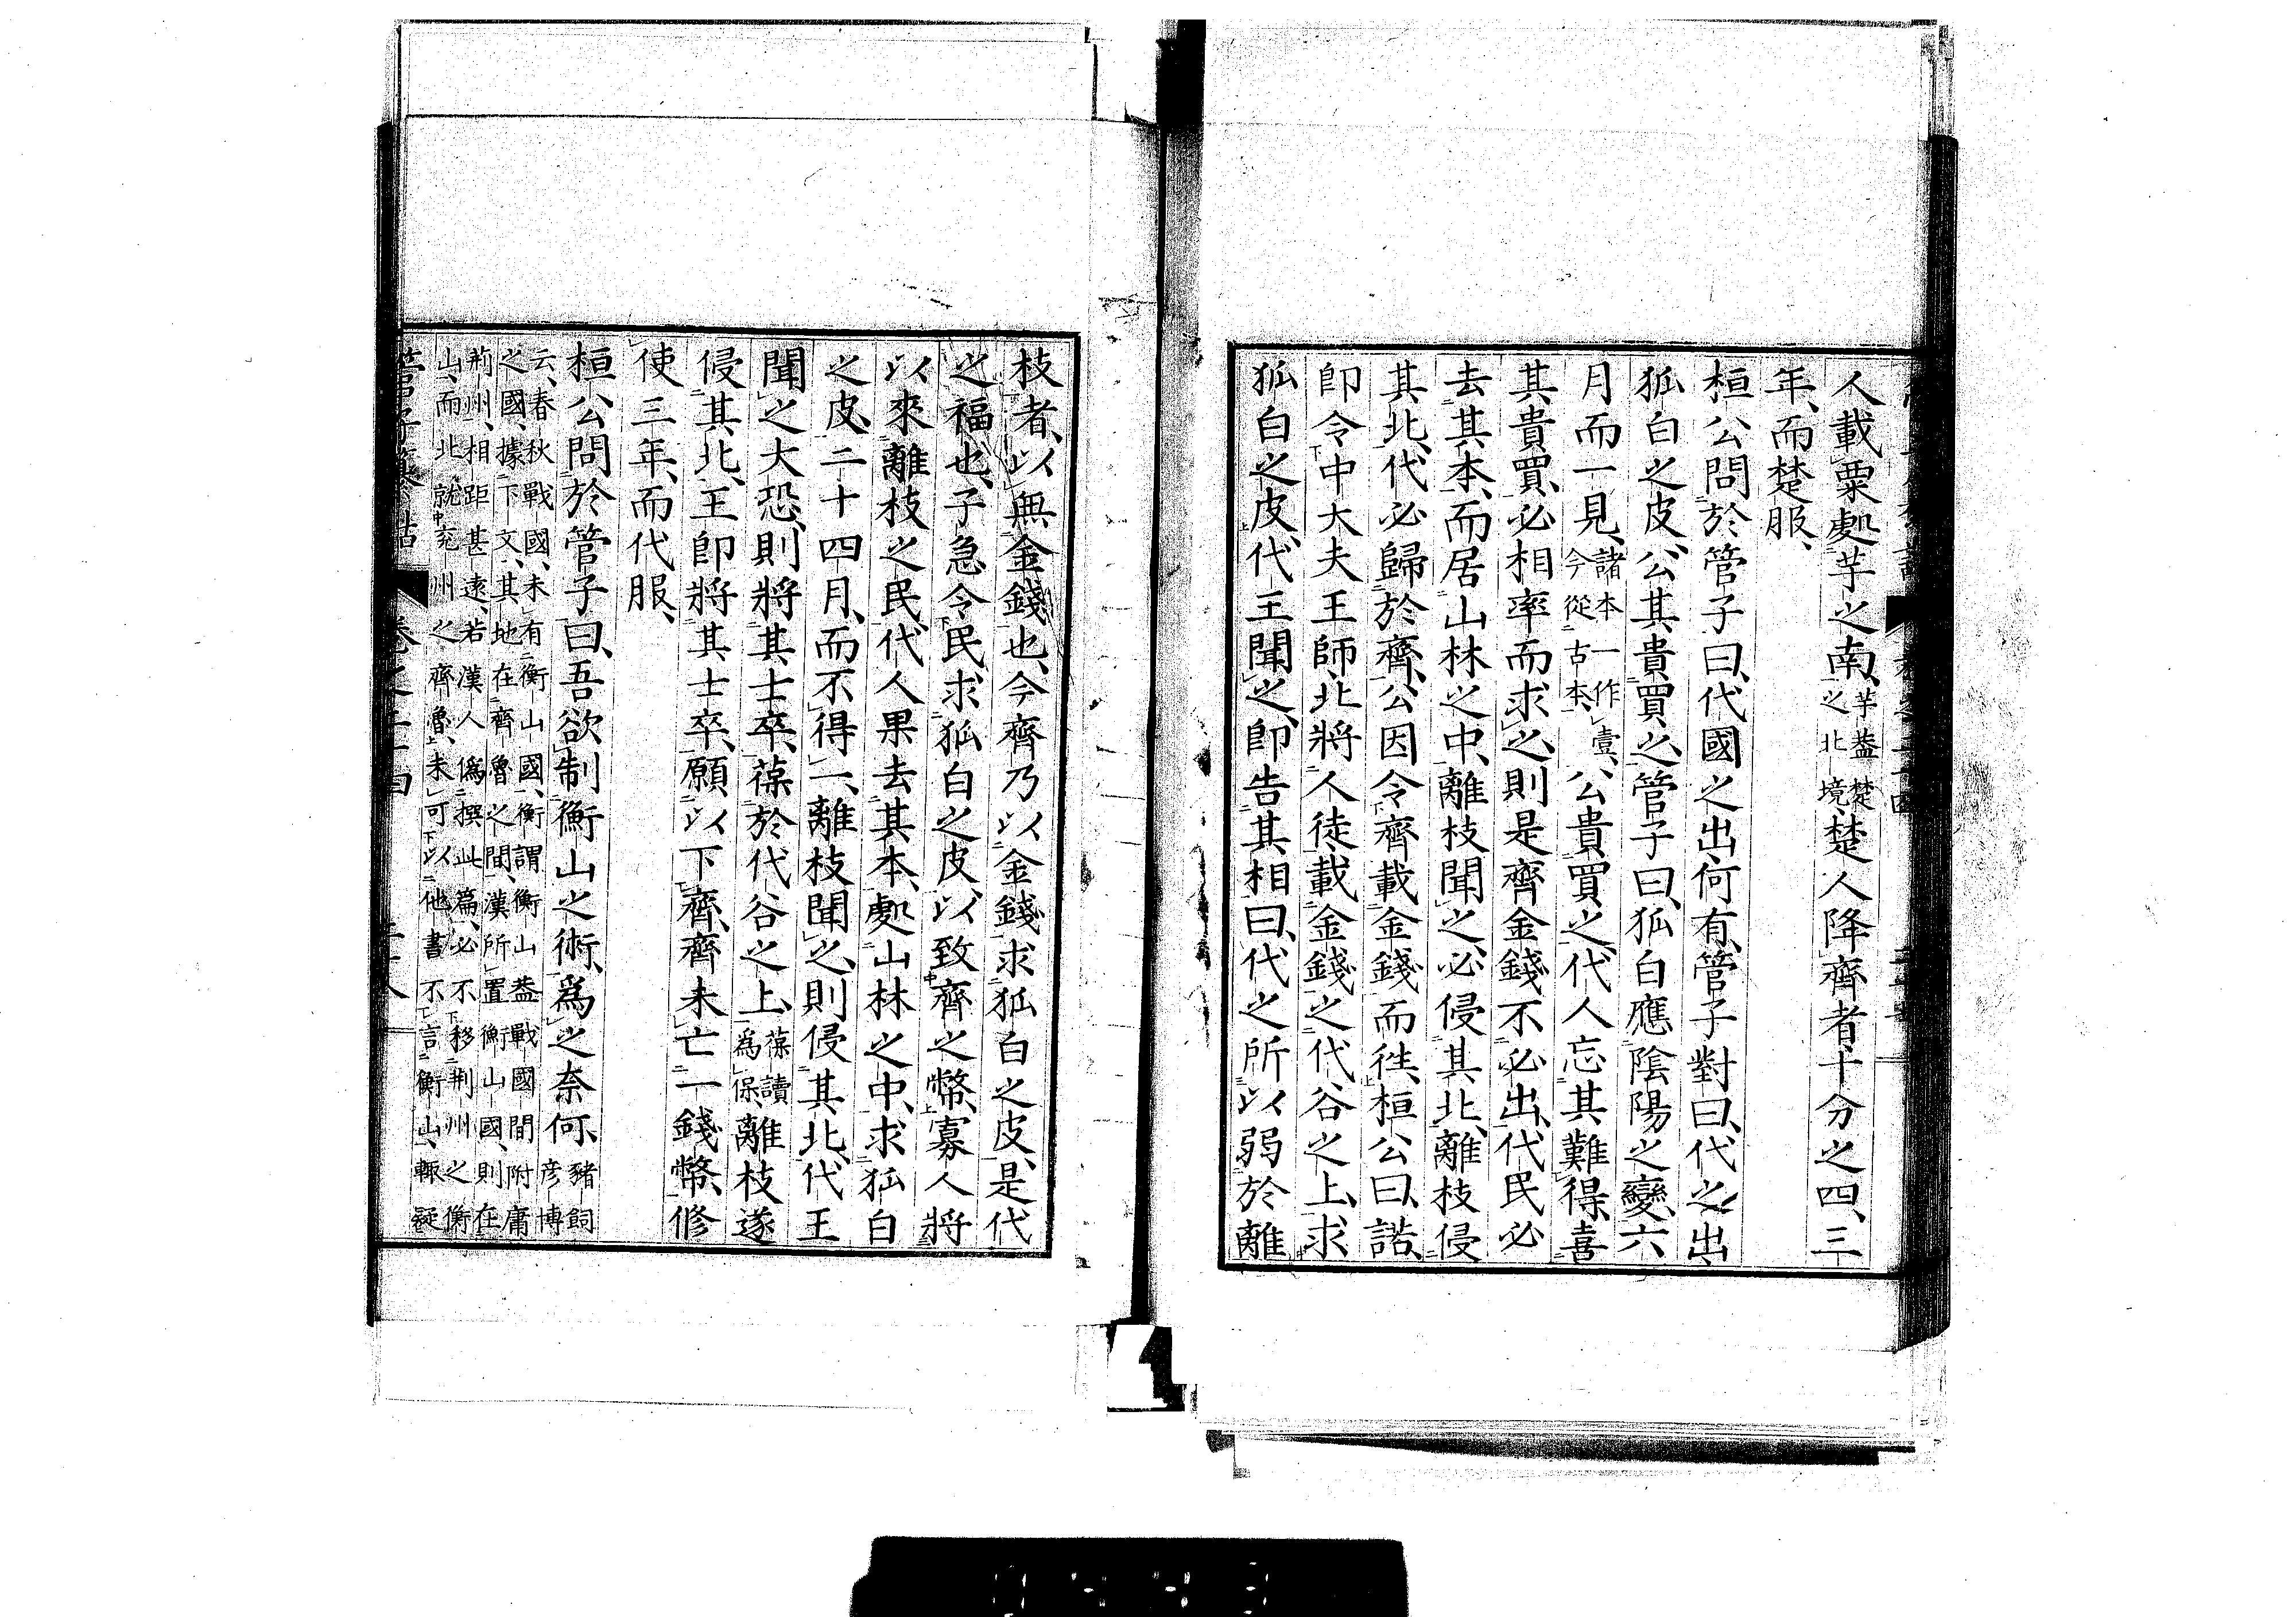 人載粟處芋之南、芋蓋楚之北境、楚人降齊者、十分之四、三
年、而楚服、
桓公問於管子曰、代國之出、何有、管子對曰、代之出、
狐白之皮、公其貴買之、管子曰、狐白應陰陽之變、六
月而一見、諸本一作壹、今從古本、公貴買之、代人忘其難得、喜
其貴買、必相率而求之、則是齊金錢不必出、代民必
去其本、而居山林之中、離枝聞之、必侵其北、離枝侵
其北、代必歸於齊、公因令齊載金錢而徃、桓公曰、諾、
卽令中大夫王師北將人徒、載金錢之代谷之上、求
狐白之皮、代王聞之、卽告其相曰、代之所以弱於離
枝者、以無金錢也、今齊乃以金錢求狐白之皮、是代
之福也、子急令民求狐白之皮、以致齊之幣、寡人將
以來離枝之民、代人果去其本、處山林之中、求狐白
之皮、二十四月、而不得一、離枝聞之、則侵其北、代王
聞之大恐、則將其士卒、葆於代谷之上、葆讀爲保、離枝遂
侵其北、王卽將其士卒、願以下齊、齊未亡一錢幣、修
使三年、而代服、
桓公問於管子曰、吾欲制衡山之術、爲之奈何、豬飼彥博
云、春秋戰國、未有衡山國、衡謂衡山蓋戰國間附庸
之國、據下文、其地在齊魯之間、漢所置衡山國、則在
荊州、相距甚遠、若漢人僞撰此篇、必不移荊州之衡
山、而北就兗州之齊魯、未可以他書不言衡山、輙疑
管子纂詁　卷之二十四